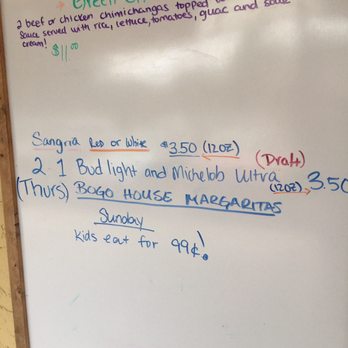 2 beef or chicken chimichangas topped
sauce served with rice, lettuce, tomatoes, guac and sour
cream! $11.00
Sangria Red or White $3.50 (12oz)
(Draft)
2 1 Bud light and Michelob Ultra (12oz) 3.50
(Thurs) BOGO HOUSE MARGARITAS
Sunday
Kids eat for 99¢!